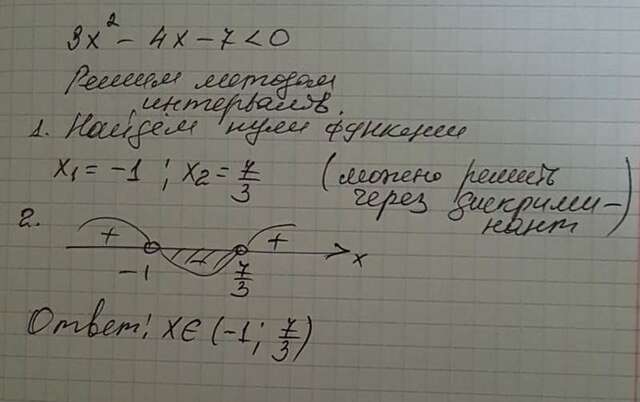 3x² - 4x - 7 < 0
Решим методом
интервалов.
1. Найдём нули функции
x₁ = -1 ; x₂ = 7/3 (можно решить
через дискрими-
нант)
2.
+ - + x
-1 7/3
Ответ: x∈(-1; 7/3)